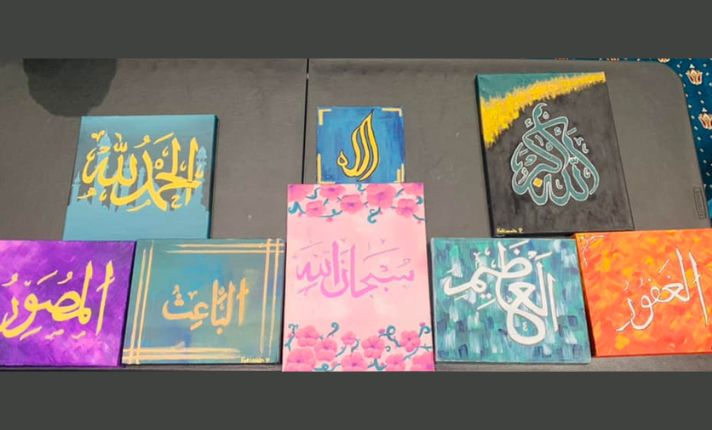 الحمد لله
الله
الله أكبر
المصور
الباعث
سبحان الله
العظيم
الغفور